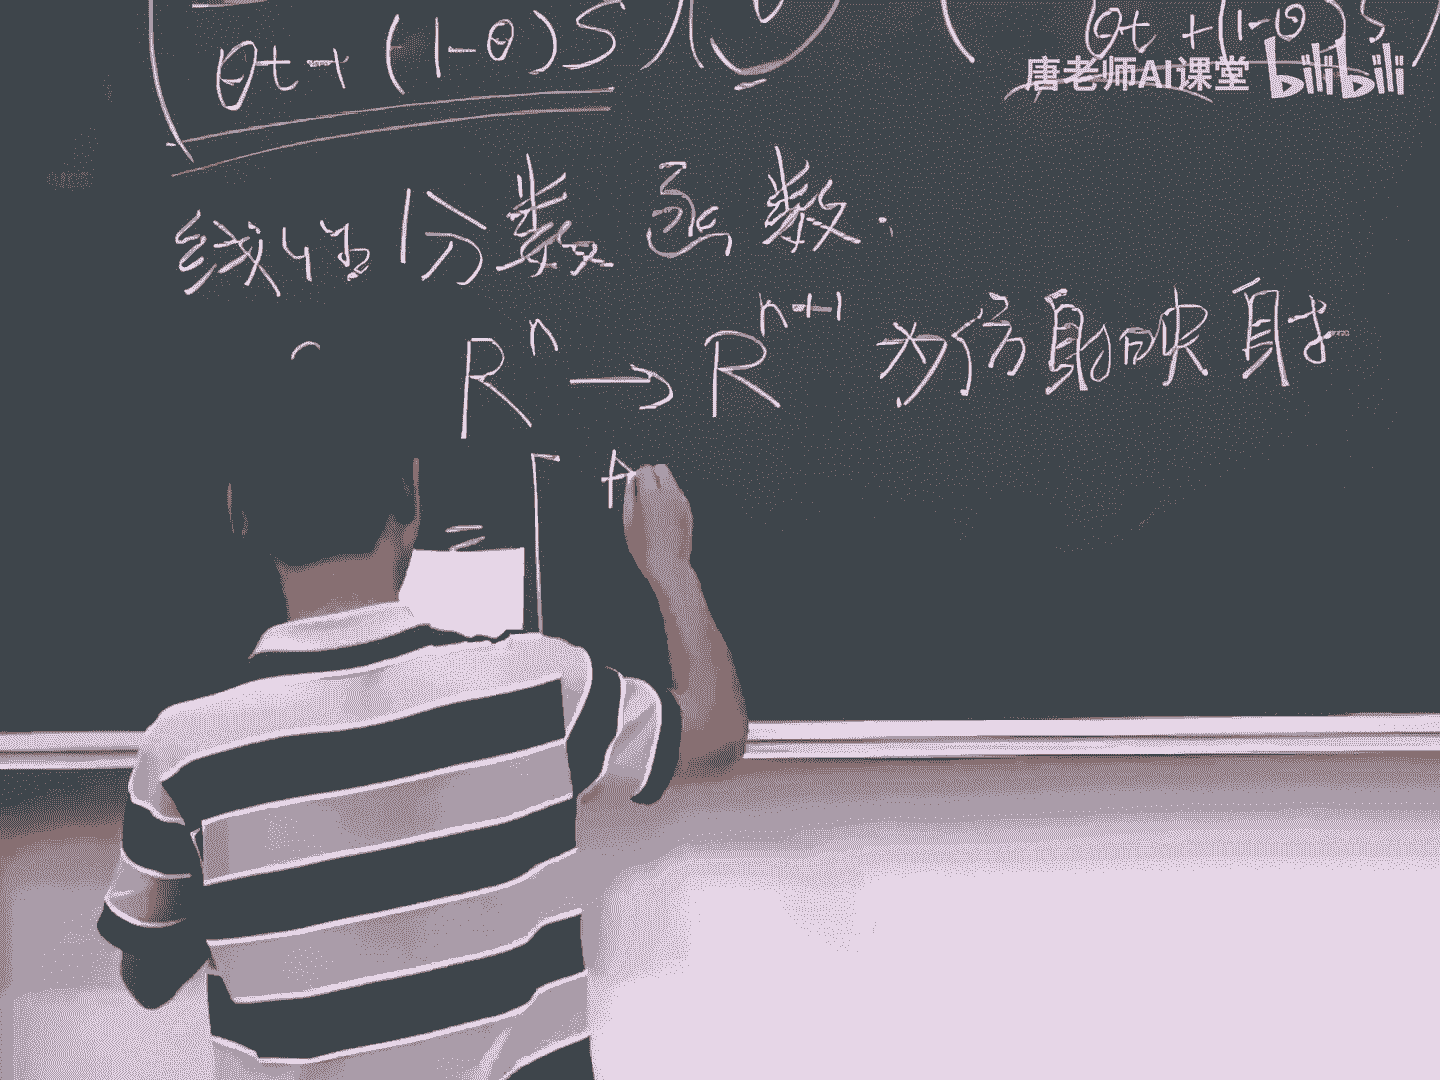 θt + (1-θ)S
θt + (1-θ)S
唐老师AI课堂 bilibili
线性分数函数.
R^n → R^{n+1} 为仿射映射
= [ A